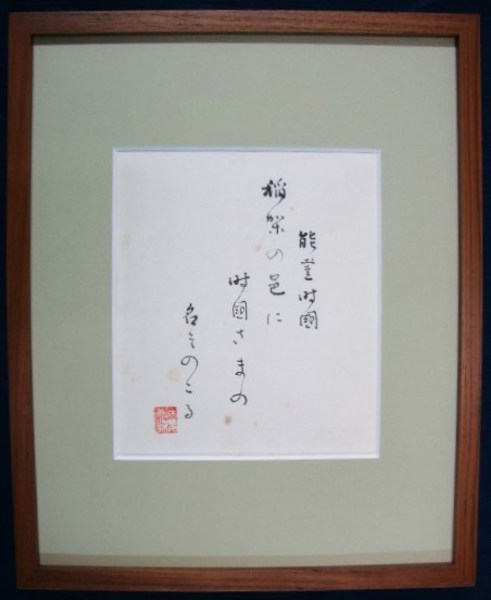 能登時國
稲架の邑に
時國さまの
名そのこる